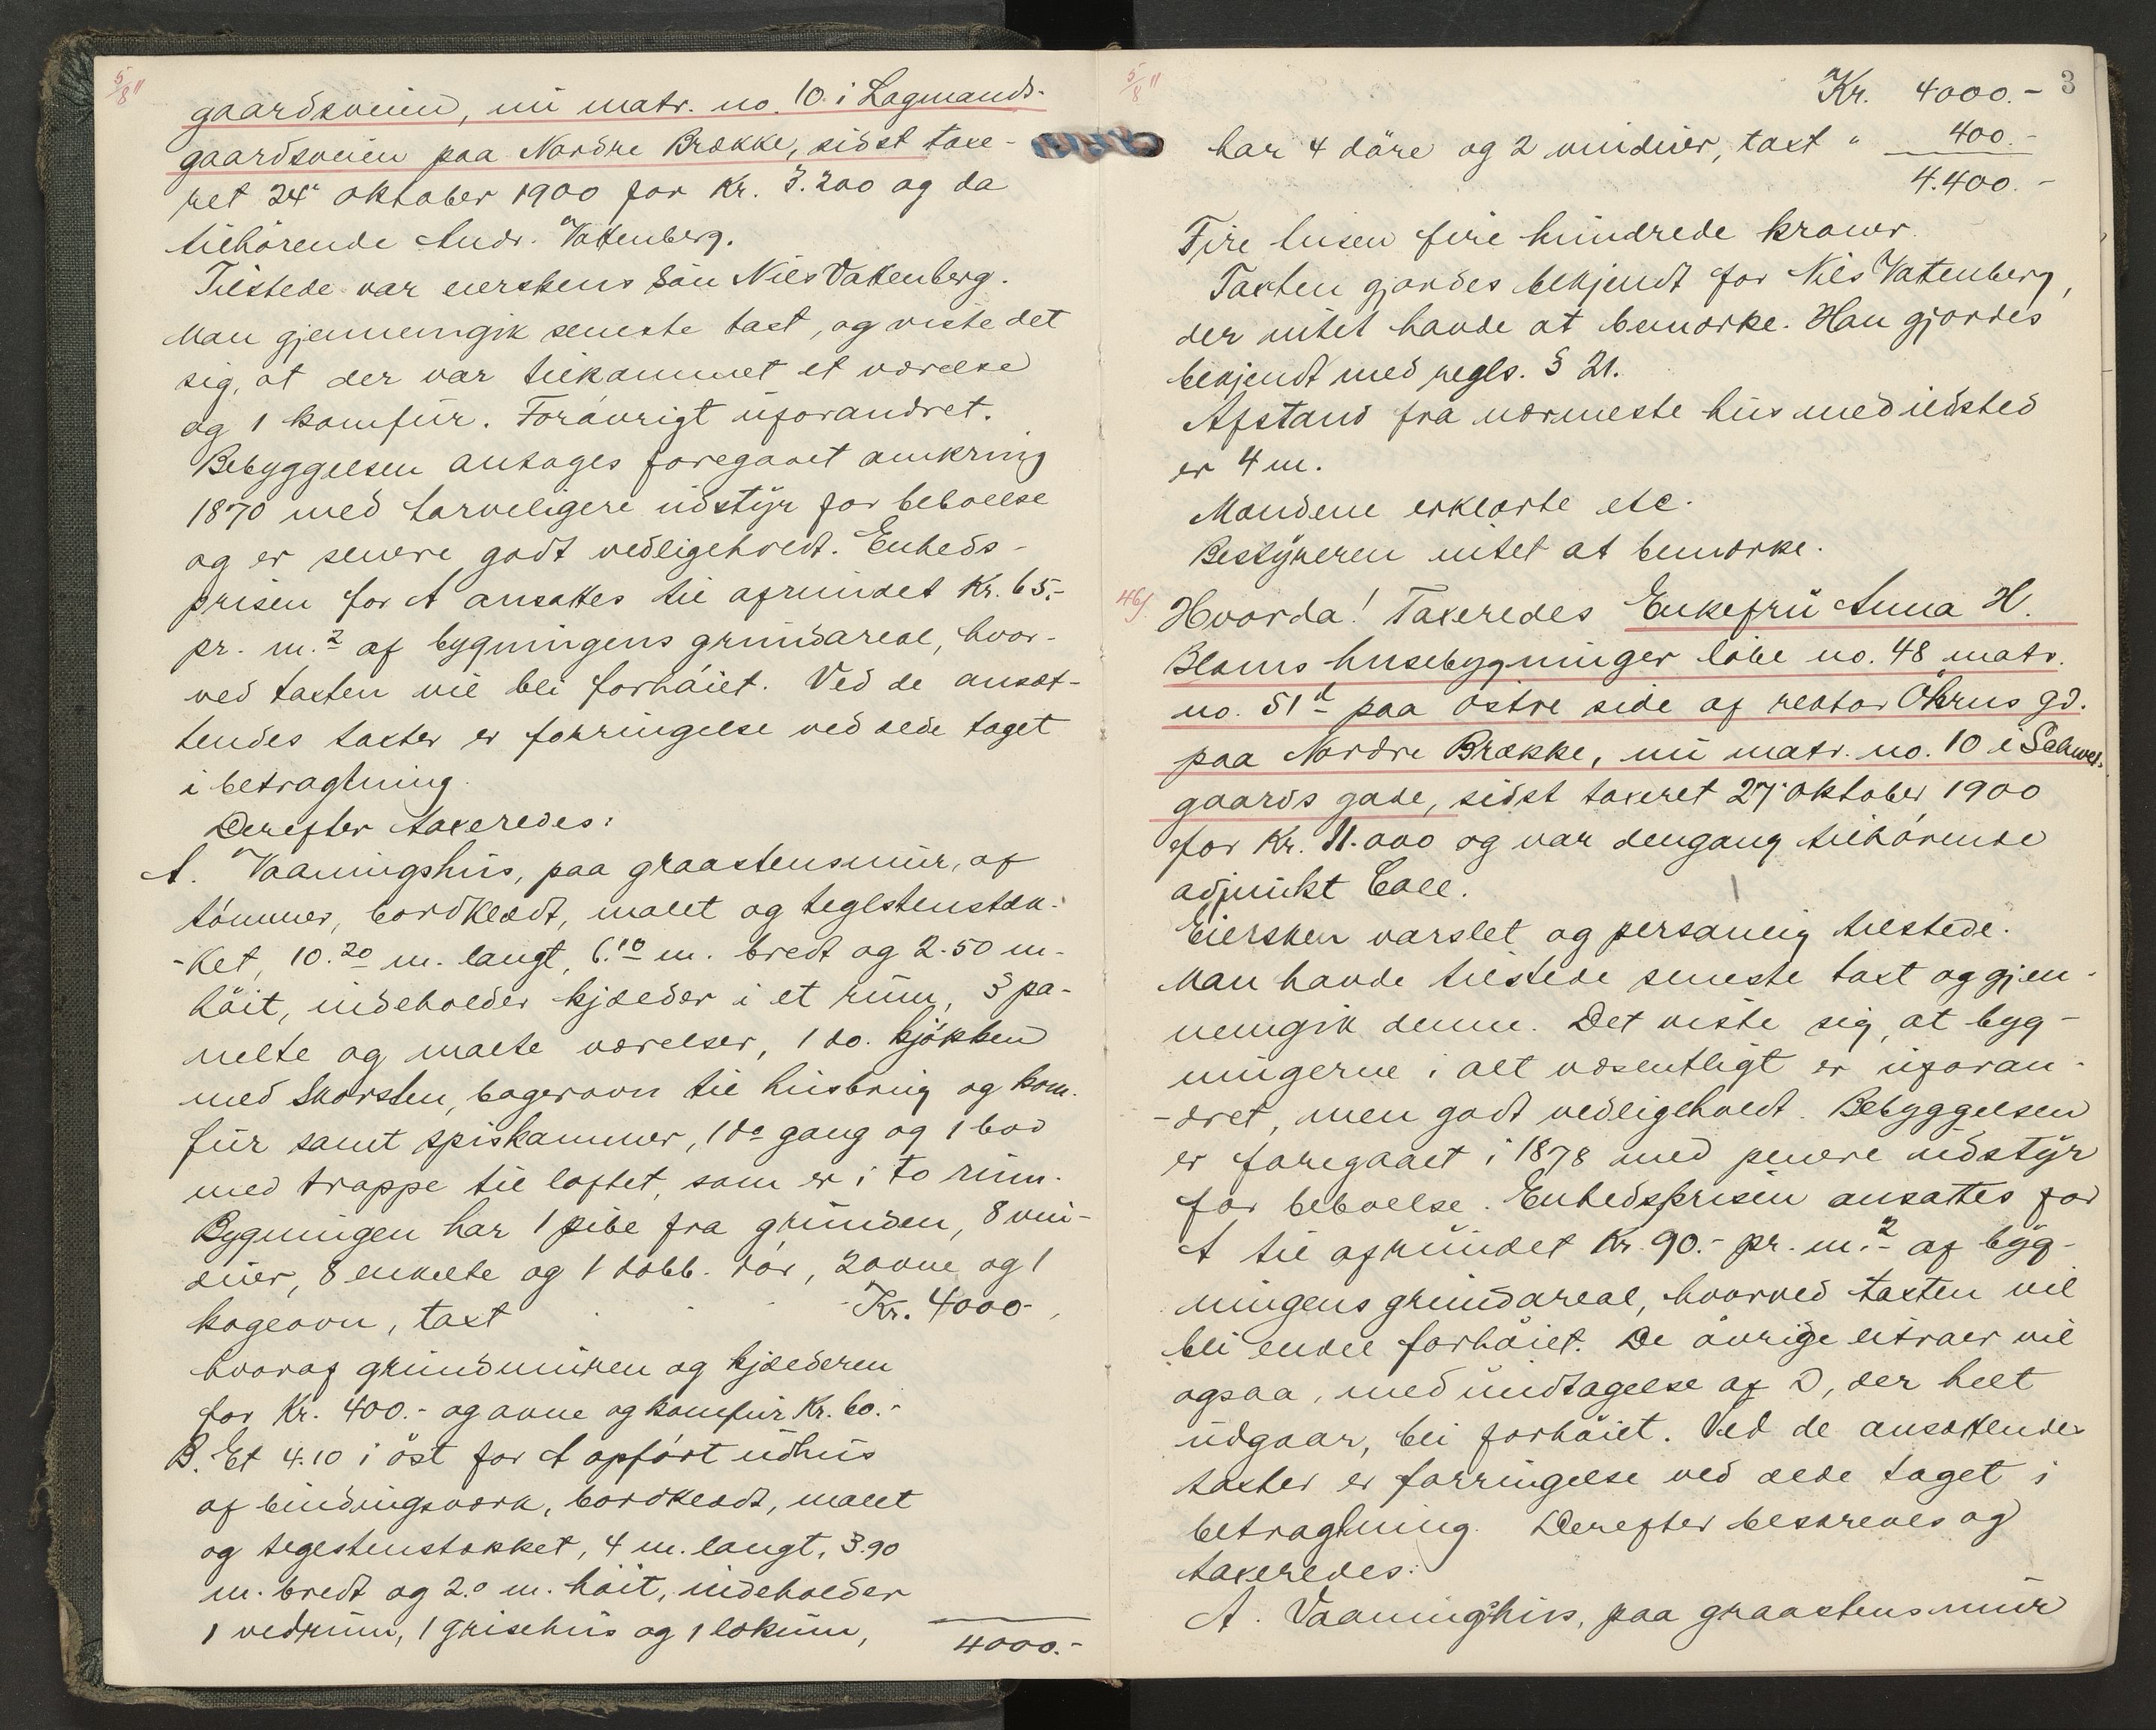 5/8 11
gaardsveien, nu matr. no. 10 i Lagmands-
gaardsveien paa Nordre Brække, sidst taxe-
ret 24' oktober 1900 for Kr. 3.200 og da
tilhörende Andr. Vattenberg.
Tilstede var eierskens sön Nils Vattenberg.
Man gjennemgik seneste taxt, og viste det
sig, at der var tilkommet et værelse
og 1 komfur. Forövrigt uforandret.
Bebyggelsen antages foregaaet omkring
1870 med tarveligere udstyr for beboelse
og er senere godt vedligeholdt. Enheds-
prisen for A ansattes til afrundet Kr. 65.-
pr. m.2 af bygningens grundareal, hvor-
ved taxten vil bli forhöiet. Ved de ansæt-
tendes taxter er forringelse ved ælde taget
i betragtning.
Derefter taxeredes:
A. Vaaningshus, paa graastensmur, af
tömmer, bordklædt, malet og teglstenstæk-
-ket, 10.20 m. langt, 6.10 m. bredt og 2.50 m.
höit, indeholder kjælder i et rum, 3 pa-
nelte og malte værelser, 1 do. kjökken
med skorsten, bagerovn til husbrug og kom-
fur samt spiskammer, 1 do gang og 1 bod
med trappe til loftet, som er i to rum.
Bygningen har 1 pibe fra grunden, 8 vin-
duer, 8 enkelte og 1 dobb. dör, 2 ovne og 1
kogeovn, taxt Kr. 4000.-
hvoraf grundmuren og kjælderen
for Kr. 400.- og ovne og komfur Kr. 60.-
B. Et 4.10 i öst for A opfört udhus
af bindingsværk, bordklædt, malet
og teglstenstækket, 4 m. langt, 3.90
m. bredt og 2.0 m. höit, indeholder
1 vedrum, 1 grisehus og 1 lokum,
4000.-
5/8 11
3
Kr. 4000.-
har 4 döre og 2 vinduer, taxt " 400.-
4.400.-
Fire tusen fire hundrede kroner.
Taxten gjordes bekjendt for Nils Vattenberg,
der intet havde at bemærke. Han gjordes
bekjendt med regls. § 21.
Afstand fra nærmeste hus med ildsted
er 4 m.
Mændene erklærte etc.
Bestyreren intet at bemærke.
46/. Hvorda! Taxeredes Enkefru Anna H.
Bloms husebygninger löbe no. 48 matr.
no. 51d paa östre side af rektor Öhrns gd.
paa Nordre Brække, nu matr. no. 10 i Schwei-
gaards gade, sidst taxeret 27' oktober 1900
for Kr. 11.000 og var dengang tilhörende
adjunkt Call.
Eiersken varslet og personlig tilstede.
Man havde tilstede seneste taxt og gjen-
nemgik denne. Det viste sig, at byg-
ningerne i alt væsentligt er uforan-
-dret, men godt vedligeholdt. Bebyggelsen
er foregaaet i 1878 med penere udstyr
for beboelse. Enhedsprisen ansattes for
A til afrundet Kr. 90.- pr. m.2 af byg-
ningens grundareal, hvorved taxten vil
bli endel forhöiet. De övrige litraer vil
ogsaa, med undtagelse af D, der helt
udgaar, bli forhöiet. Ved de ansættendes
taxter er forringelse ved ælde taget i
betragtning. Derefter beskreves og
taxeredes:
A. Vaaningshus, paa graastensmur